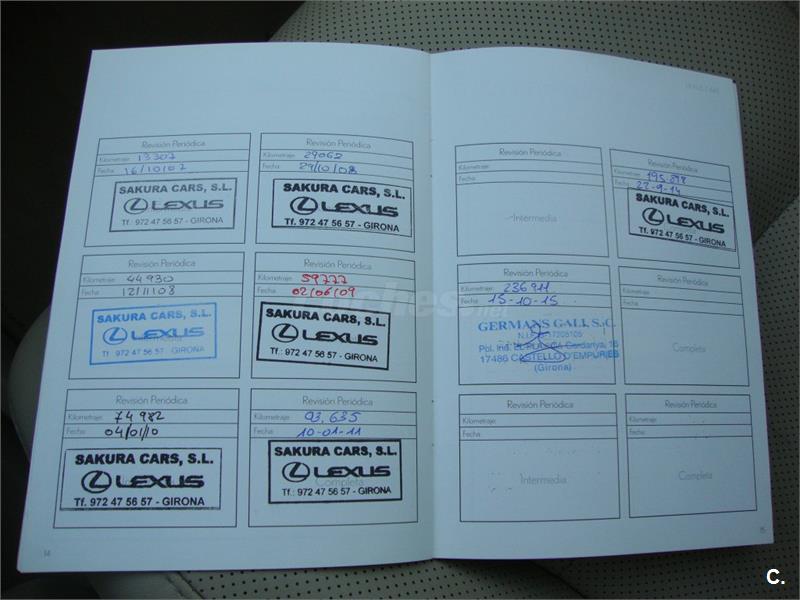 Revisión Periódica
Kilometraje: 13307
Fecha: 16/10/07
SAKURA CARS, S.L.
LEXUS
Tf. 972 47 56 57 - GIRONA
Revisión Periódica
Kilometraje: 29062
Fecha: 29/10/08
SAKURA CARS, S.L.
LEXUS
Tf.: 972 47 56 57 - GIRONA
Revisión Periódica
Kilometraje: 44930
Fecha: 12/11/08
SAKURA CARS, S.L.
LEXUS
Tf. 972 47 56 57 - GIRONA
Revisión Periódica
Kilometraje: 59777
Fecha: 02/06/09
SAKURA CARS, S.L.
LEXUS
Tf.: 972 47 56 57 - GIRONA
Revisión Periódica
Kilometraje: 74982
Fecha: 04/01/10
SAKURA CARS, S.L.
LEXUS
Tf. 972 47 56 57 - GIRONA
Revisión Periódica
Kilometraje: 93,635
Fecha: 10-01-11
SAKURA CARS, S.L.
LEXUS
Completa
Tf.: 972 47 56 57 - GIRONA
14
Revisión Periódica
Kilometraje:
Fecha:
Intermedia
Revisión Periódica
Kilometraje: 195.898
Fecha: 22-9-14
SAKURA CARS, S.L.
LEXUS
Tf.: 972 47 56 57 - GIRONA
Revisión Periódica
Kilometraje: 236911
Fecha: 15-10-15
GERMANS GALI, S.C.
Pol. Ind. Cerdanya, 16
17486 CASTELLÓ D'EMPÚRIES
(Girona)
Revisión Periódica
Kilometraje:
Fecha:
Completa
Revisión Periódica
Kilometraje:
Fecha:
Intermedia
Revisión Periódica
Kilometraje:
Fecha:
Completa
15
C.